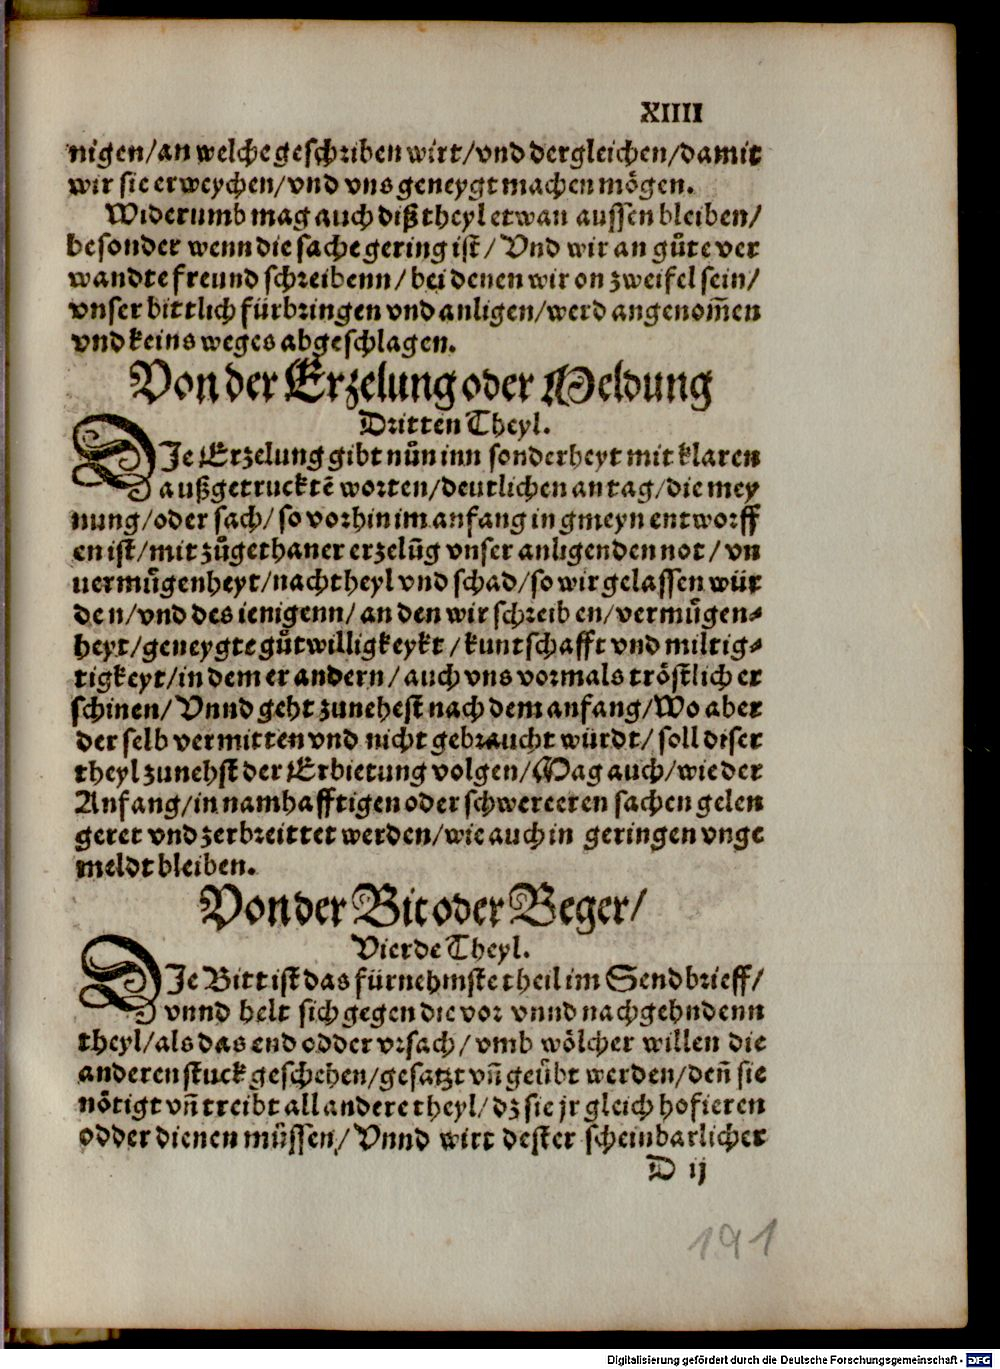 XIIII
nigen/an welche geschriben wirt/vnd dergleichen/damit
wir sie erweychen/vnd vns geneygt machen mögen.
Widerumb mag auch diß theyl etwan aussen bleiben/
besonder wenn die sache gering ist/ Vnd wir an gůte ver
wandte freund schreibenn/ bei denen wir on zweifel sein/
vnser bittlich fürbringen vnd anligen/werd angenom̃en
vnd keins weges abgeschlagen.
Von der Erzelung oder Meldung
Dritten Theyl.
DJe Erzelung gibt nůn inn sonderheyt mit klaren
außgetrucktē worten/deutlichen an tag/die mey
nung/oder sach/ so vorhin im anfang in gmeyn entworff
en ist/mit zůgethaner erzelũg vnser anligenden not/ vn
uermůgenheyt/nachtheyl vnd schad/so wir gelassen wür
den/vnd des ienigenn/ an den wir schreiben/vermůgen⸗
heyt/geneygte gůtwilligkeykt /kuntschafft vnd miltig⸗
tigkeyt/in dem er andern/ auch vns vormals tröstlich er
schinen/ Vnnd geht zunehest nach dem anfang/Wo aber
der selb vermitten vnd nicht gebraucht würdt/ soll diser
theyl zunehst der Erbietung volgen/Mag auch/wie der
Anfang/in namhafftigen oder schwereeren sachen gelen
geret vnd zerbreittet werden/wie auch in geringen vnge
meldt bleiben.
Von der Bit oder Beger/
Vierde Theyl.
DJe Bitt ist das fürnehmste theil im Sendbrieff/
vnnd helt sich gegen die vor vnnd nachgehndenn
theyl/als das end odder vrsach/ vmb wölcher willen die
anderen stuck geschehen/gesatzt vñ geůbt werden/den̄ sie
nötigt vñ treibt all andere theyl/ dz sie jr gleich hofieren
odder dienen müssen/ Vnnd wirt dester scheinbarlicher
D ij
191
Digitalisierung gefördert durch die Deutsche Forschungsgemeinschaft - DFG